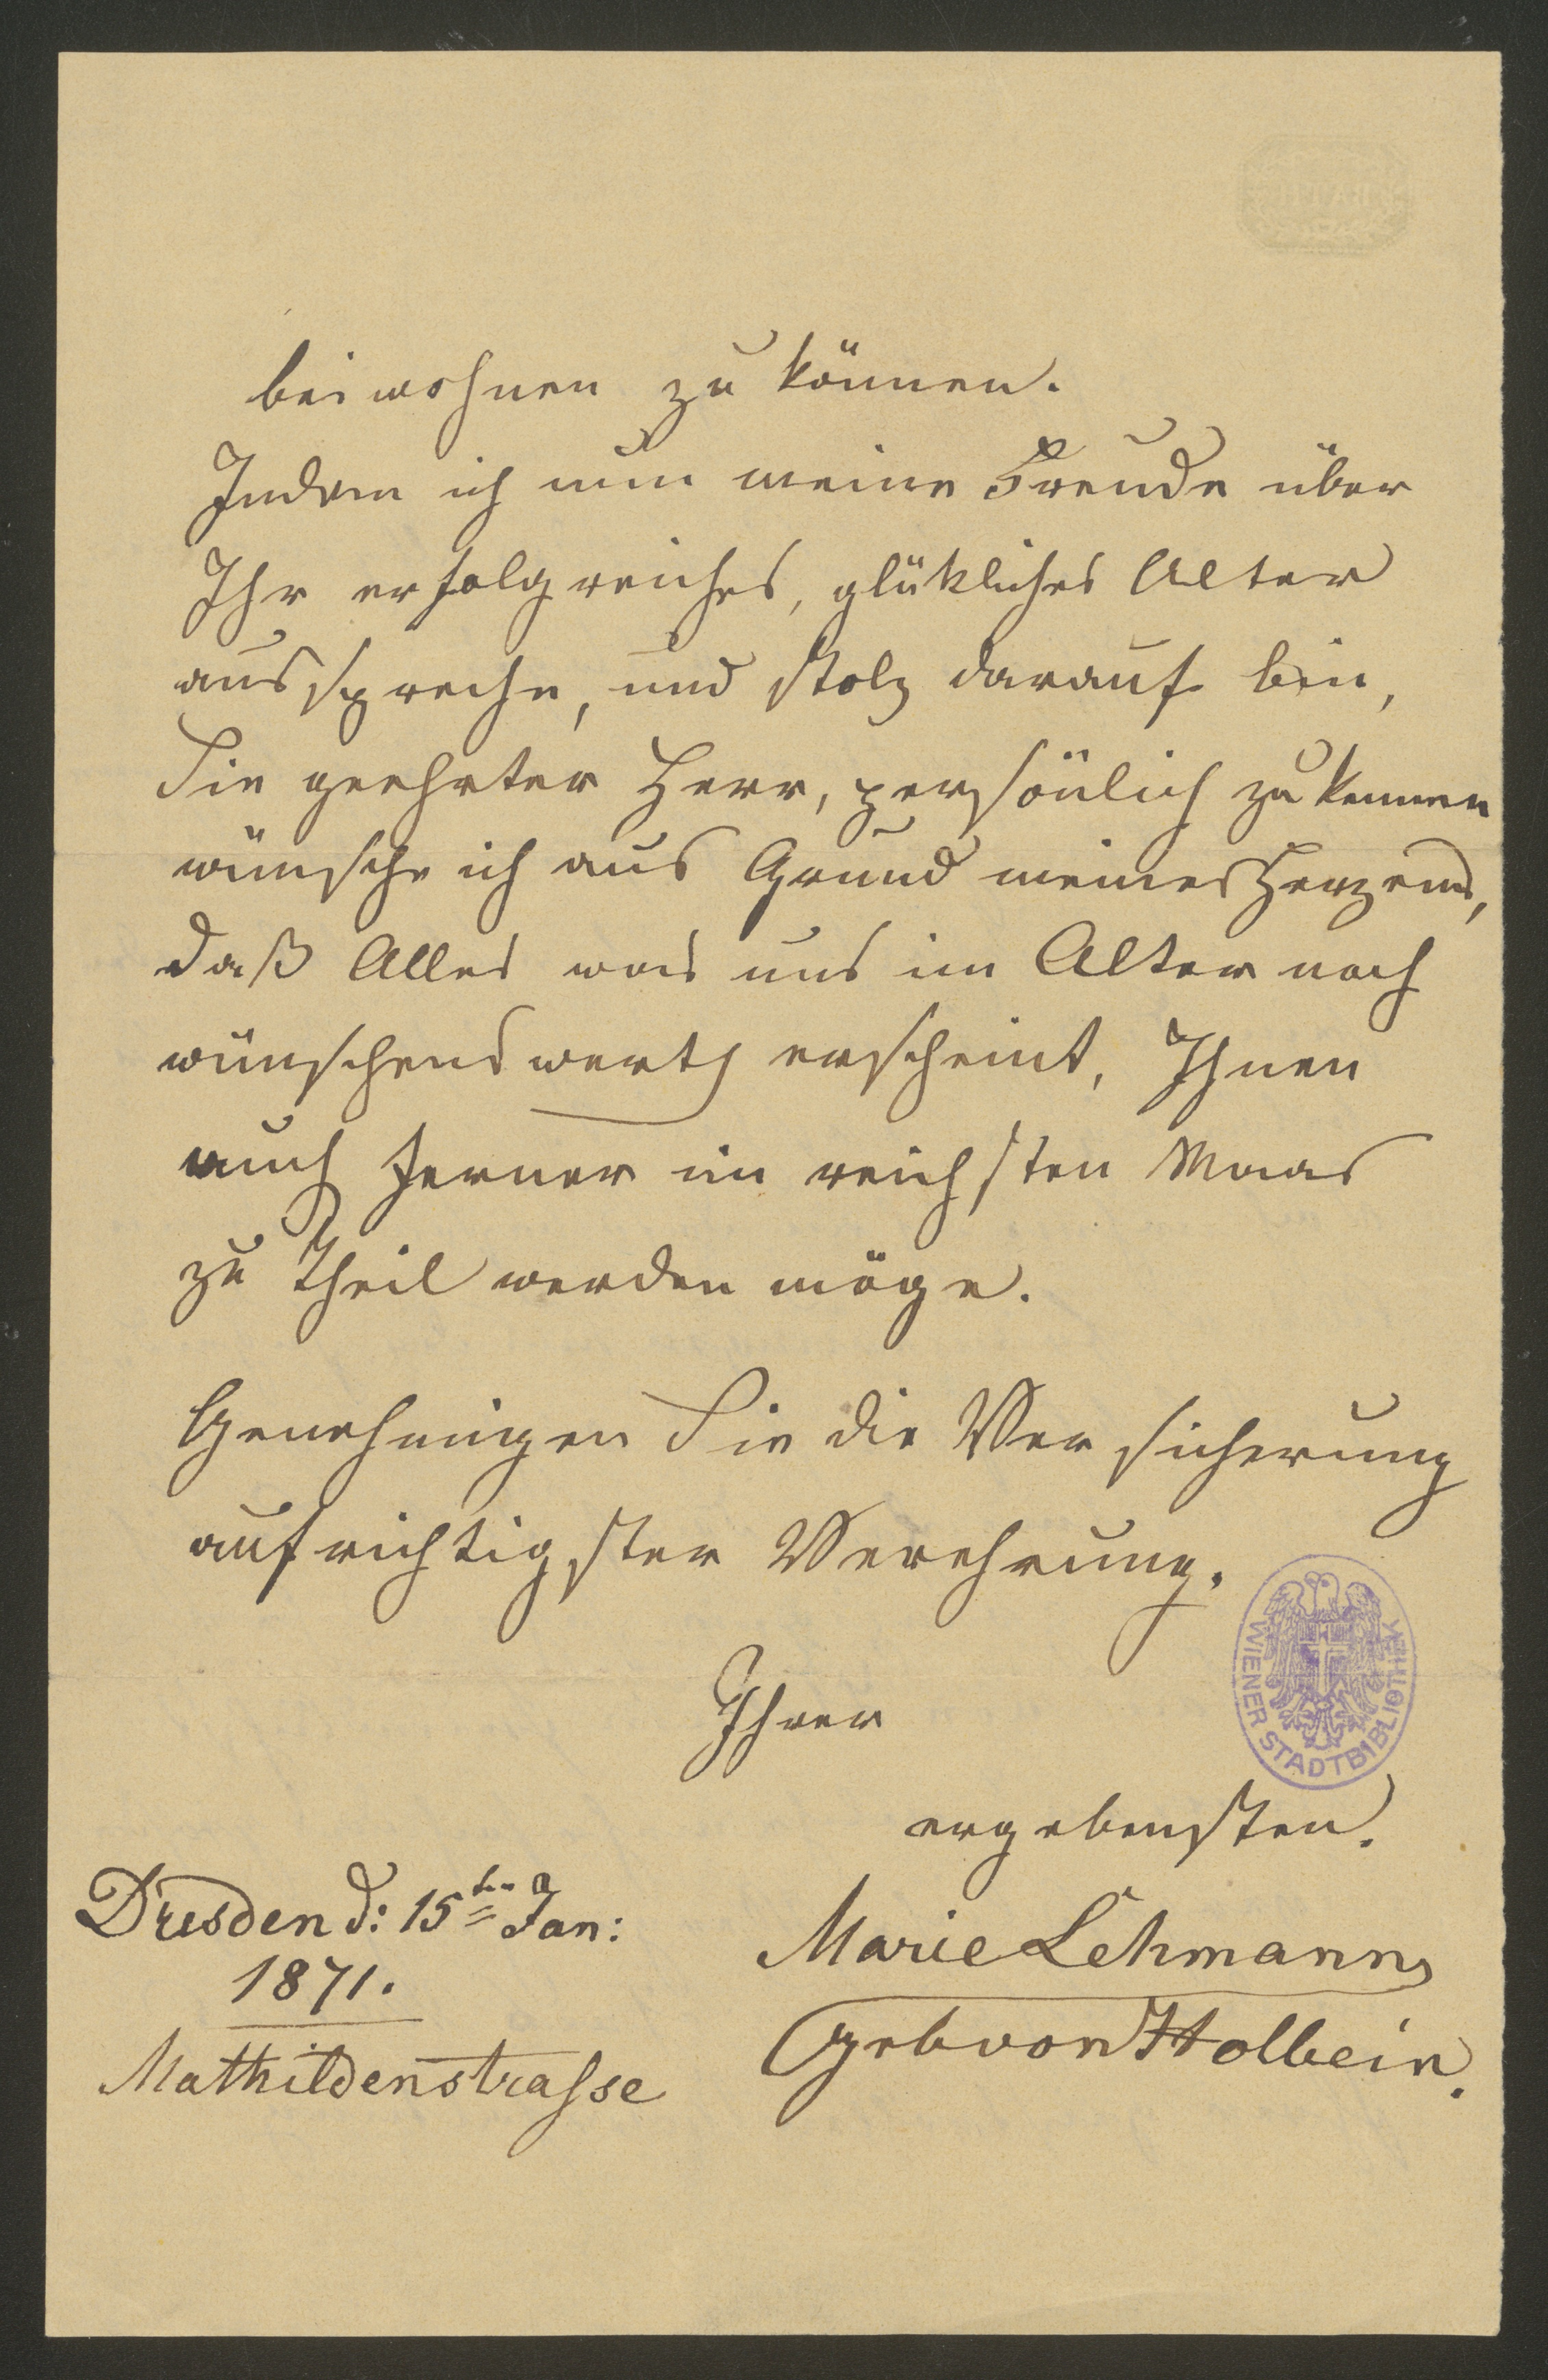 beiwohnen zu können.
Indem ich nun meine Freude über
Ihr erfolgreiches, glükliches Alter
ausspreche, und stolz darauf bin,
Sie geehrter Herr, persönlich zu kennen
wünsche ich aus Grund meines Herzens,
daß Alles was uns im Alter noch
wünschenswerth erscheint, Ihnen
auch ferner im reichsten Maas
zu Theil werden möge.
Genehmigen Sie die Versicherung
aufrichtigster Verehrung.
Ihrer
ergebensten.
Dresden d: 15ten Jan:
1871.
Mathildenstrasse
Marie Lehmann
geb von Holbein.
WIENER STADTBIBLIOTHEK